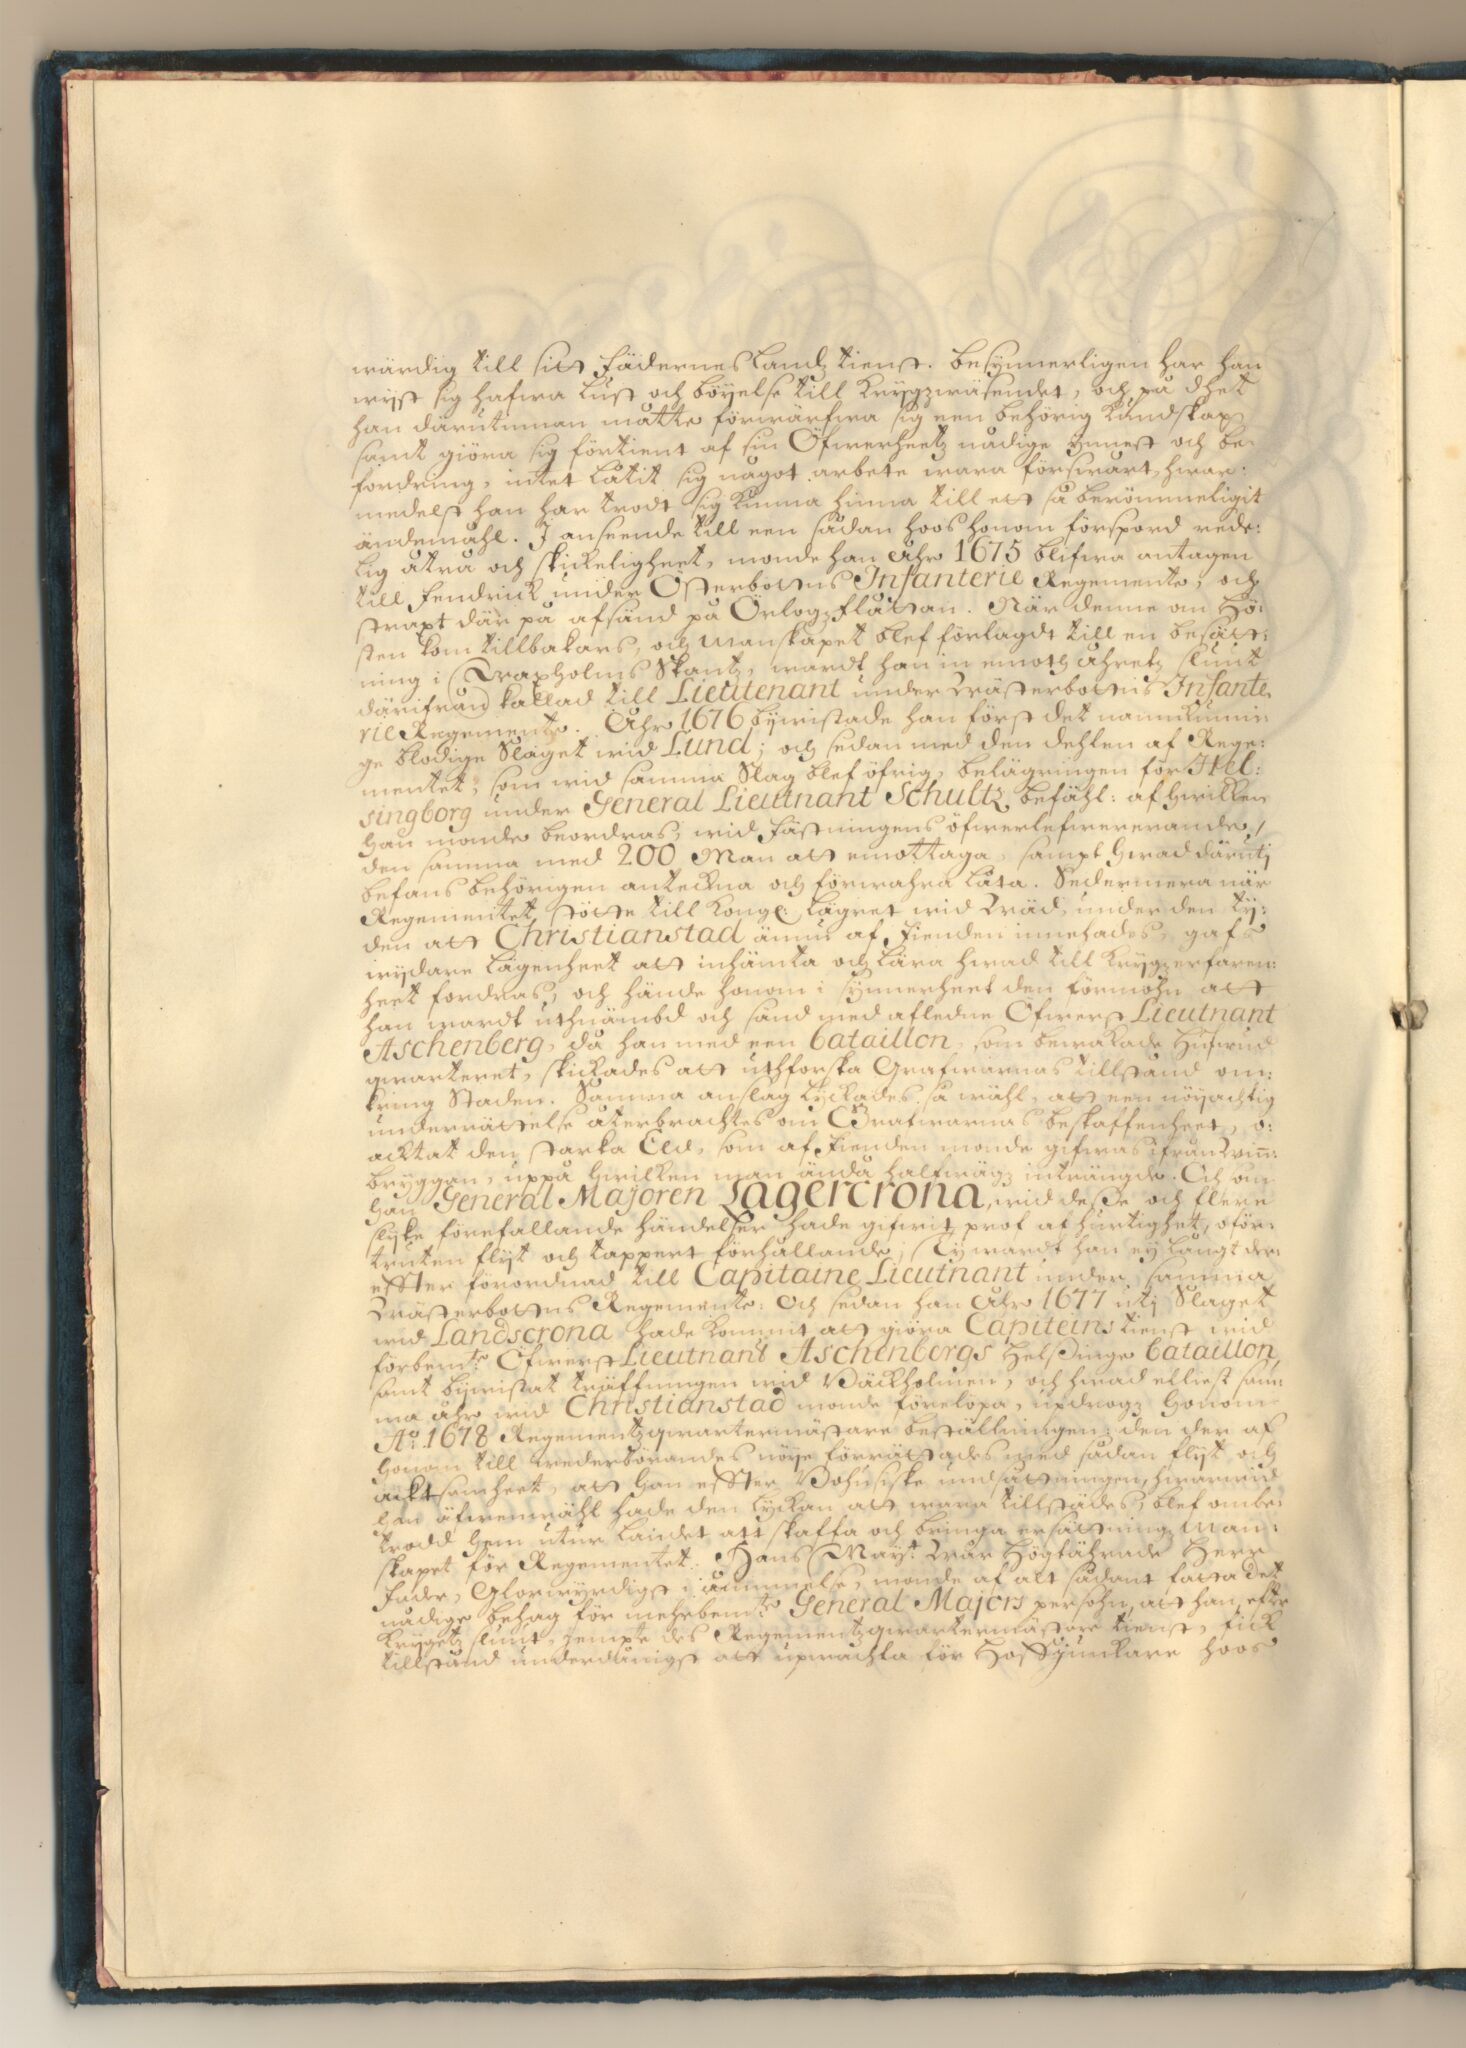 wärdig till sitt Fäderneslandz tienst. Besynnerligen har han
wyst sig hafwa lust och böyelse till Krygzwäsendet, och på dhet
han därutinnan måtte förwärfwa sig een behörig kundskap
samt giöra sig förtient af sin Öfwerheetz nådige ynnest och be-
fordring, intet låtit sig något arbete wara förswårt, hwar:
medelst han har trodt sig kunna hinna till ett så berömmeligit
ändemåhl. J anseende till een sådan hoos honom förspord rede:
lig åtrå och skickeligheet, monde han Åhr 1675 blifwa antagen
till Fendrick under Österbottns Infanterie Regemente, och
straxt där på afsänd på Örlogzflåttan. När denne om Hö:
sten kom tillbakars, och Manskapet blef förlagdt till en besätt:
ning i Waxholms Skantz, wardt han in emoth åhretz slut
därifrån kallad till Lieutenant under Wästerbottns Infante
rie Regemente. Åhr 1676 bywistade han först det namnkunni:
ge blodige Slaget wid Lund; och sedan med den dehlen af Rege:
mentet, som wid samma Slag blef öfrig, belägringen för Hel:
singborg under General Lieutnant Schultz befähl: af hwilken
han monde beordras, wid Fästningens öfwerlefwererande,
den samma med 200 Man att emottaga, sampt hwad därutj
befans behörigen anteckna och förwahra låta. Sedermera när
Regementet stötte till Kongl: Lägret wid Wäd, under den ty:
den att Christianstad ännu af Fienden innehades, gafs
wydare lägenheet att inhämta och lära hwad till Krygzerfaren:
heet fordras, och hände honom i synnerheet den förmohn att
han wardt uthnämbd och sänd med afledne Öfwerst Lieutnant
Aschenberg, då han med een bataillon, som bewakade Hufwud
qwarteret, skickades att uthforska Grafwarnas tillstånd om:
kring Staden. Samma anslag lyckades så wähl, att een nöyachtig
underrättelse återbrachtes om Grafwarnas beskaffenheet, o:
achtat den starka Eld, som af Fienden monde gifwas ifrån
bryggan, uppå hwilken man ända halfwägz inträngde. Och som
han General Majoren Lagercrona, wid desse och flere
slyke förefallande händelser hade gifwit prof af hurtighet, oför:
truten flyt och tappert förhållande; Ty wardt han ey långt der:
effter förordnad till Capitaine Lieutnant under samma
Wästerbottns Regemente: Och sedan han Åhr 1677 utj Slaget
wid Landscrona hade kommit att giöra Capiteins tienst wid
förbemte: Öfwerst Lieutnant Aschenbergs Helsinge bataillon,
samt bywistat träffningen wid Bäckholmen, och hwad elliest sam:
ma åhr wid Christianstad monde förelöpa, updrogz honom
Ao: 1678 Regementzqwartermästare beställningen; den der af
honom till wederbörandes nöye förrättades med sådan flyt och
acktsamheet, att han effter Bohusiske undsättningen, hwarwid
han äfwenwähl hade den lyckan att wara tillstädes, blef ombe:
trodd hem utur landet att skaffa och bringa ersättningz Man:
skapet för Regementet. Hans Mayt: Wår Högtährade Herr
Fader, Glorwyrdigst i åminnelse, monde af alt sådant fatta det
nådige behag för mehrbemte: General Majors persohn, att han, efter
Krygetz slut, jempte des Regementzqwartermästare tienst, fick
tillstånd underdånigst att upwachta för Hoffjunkare hoos